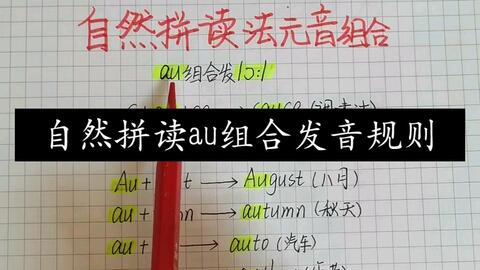 自然拼读法元音组合
au组合发/ɔ:/
自然拼读au组合发音规则
Au+ t → August (八月)
au+ n → autumn (秋天)
au+ → auto (汽车)